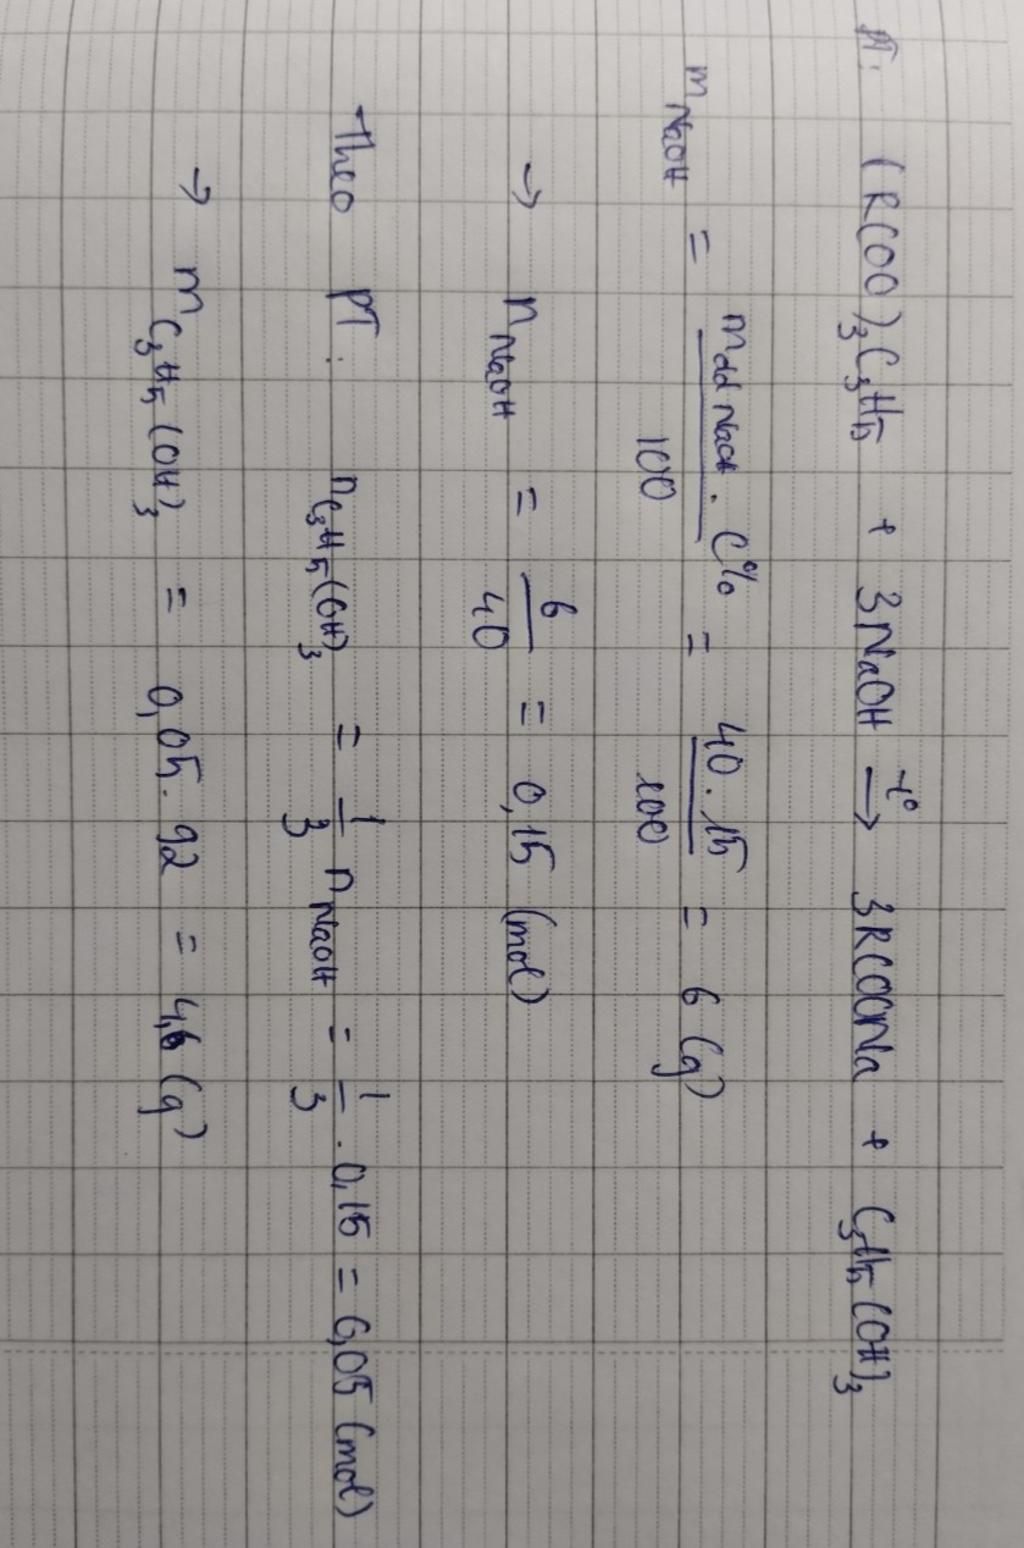 PT: (RCOO)₃C₃H₅ + 3NaOH —t°→ 3RCOONa + C₃H₅(OH)₃
m NaOH = m dd NaOH . C% / 100 = 40 . 15 / 100 = 6 (g)
→ n NaOH = 6 / 40 = 0,15 (mol)
Theo PT: n C₃H₅(OH)₃ = 1/3 n NaOH = 1/3 . 0,15 = 0,05 (mol)
→ m C₃H₅(OH)₃ = 0,05 . 92 = 4,6 (g)